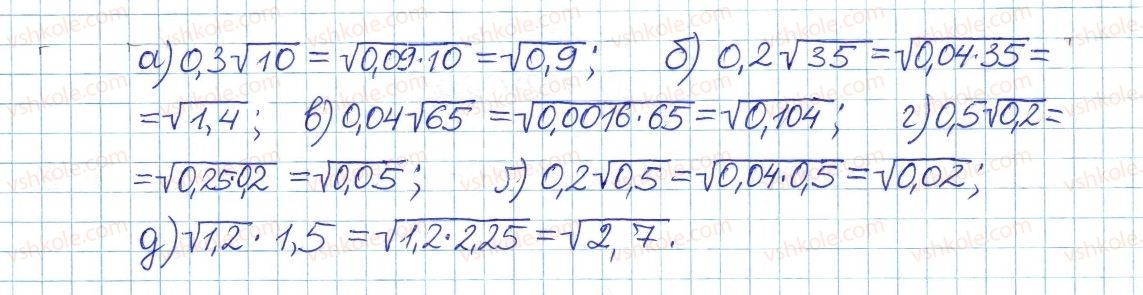 а) 0,3√10 = √0,09·10 = √0,9; б) 0,2√35 = √0,04·35 =
= √1,4; в) 0,04√65 = √0,0016·65 = √0,104; г) 0,5√0,2 =
= √0,25·0,2 = √0,05; ґ) 0,2√0,5 = √0,04·0,5 = √0,02;
д) √1,2 · 1,5 = √1,2·2,25 = √2,7.